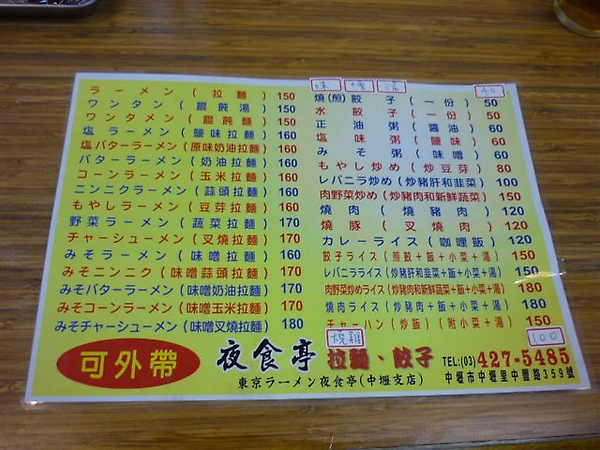 ラーメン (拉麵) 150
ワンタン (餛飩湯) 150
ワンタメン (餛飩麵) 150
塩 ラーメン (鹽味拉麵) 160
塩バターラーメン (原味奶油拉麵) 160
バターラーメン (奶油拉麵) 160
コーンラーメン (玉米拉麵) 160
ニンニクラーメン (蒜頭拉麵) 160
もやしラーメン (豆芽拉麵) 160
野菜ラーメン (蔬菜拉麵) 170
チャーシューメン (叉燒拉麵) 170
みそラーメン (味噌拉麵) 160
みそニンニク (味噌蒜頭拉麵) 170
みそバターラーメン (味噌奶油拉麵) 170
みそコーンラーメン (味噌玉米拉麵) 170
みそチャーシューメン (味噌叉燒拉麵) 180
味 噌 湯 40
燒(煎)餃子 (一份) 50
水餃子 (一份) 50
正油粥 (醬油) 60
塩味粥 (鹽味) 60
みそ粥 (味噌) 60
もやし炒め (炒豆芽) 80
レバニラ炒め (炒豬肝和韮菜) 100
肉野菜炒め (炒豬肉和新鮮蔬菜) 150
燒肉 (燒豬肉) 120
燒豚 (叉燒肉) 120
カレーライス (咖哩飯) 120
餃子ライス (煎餃+飯+小菜+湯) 150
レバニラライス (炒豬肝和韮菜+飯+小菜+湯) 150
肉野菜炒めライス (炒豬肉和新鮮蔬菜+飯+小菜+湯) 180
燒肉ライス (炒豬肉+飯+小菜+湯) 180
チャーハン (炒飯) (附小菜+湯) 150
燒雞 100
可外帶
夜食亭 拉麵、餃子
東京ラーメン夜食亭(中堀支店)
TEL:(03)427-5485
中堀市中堀里中豐路359號